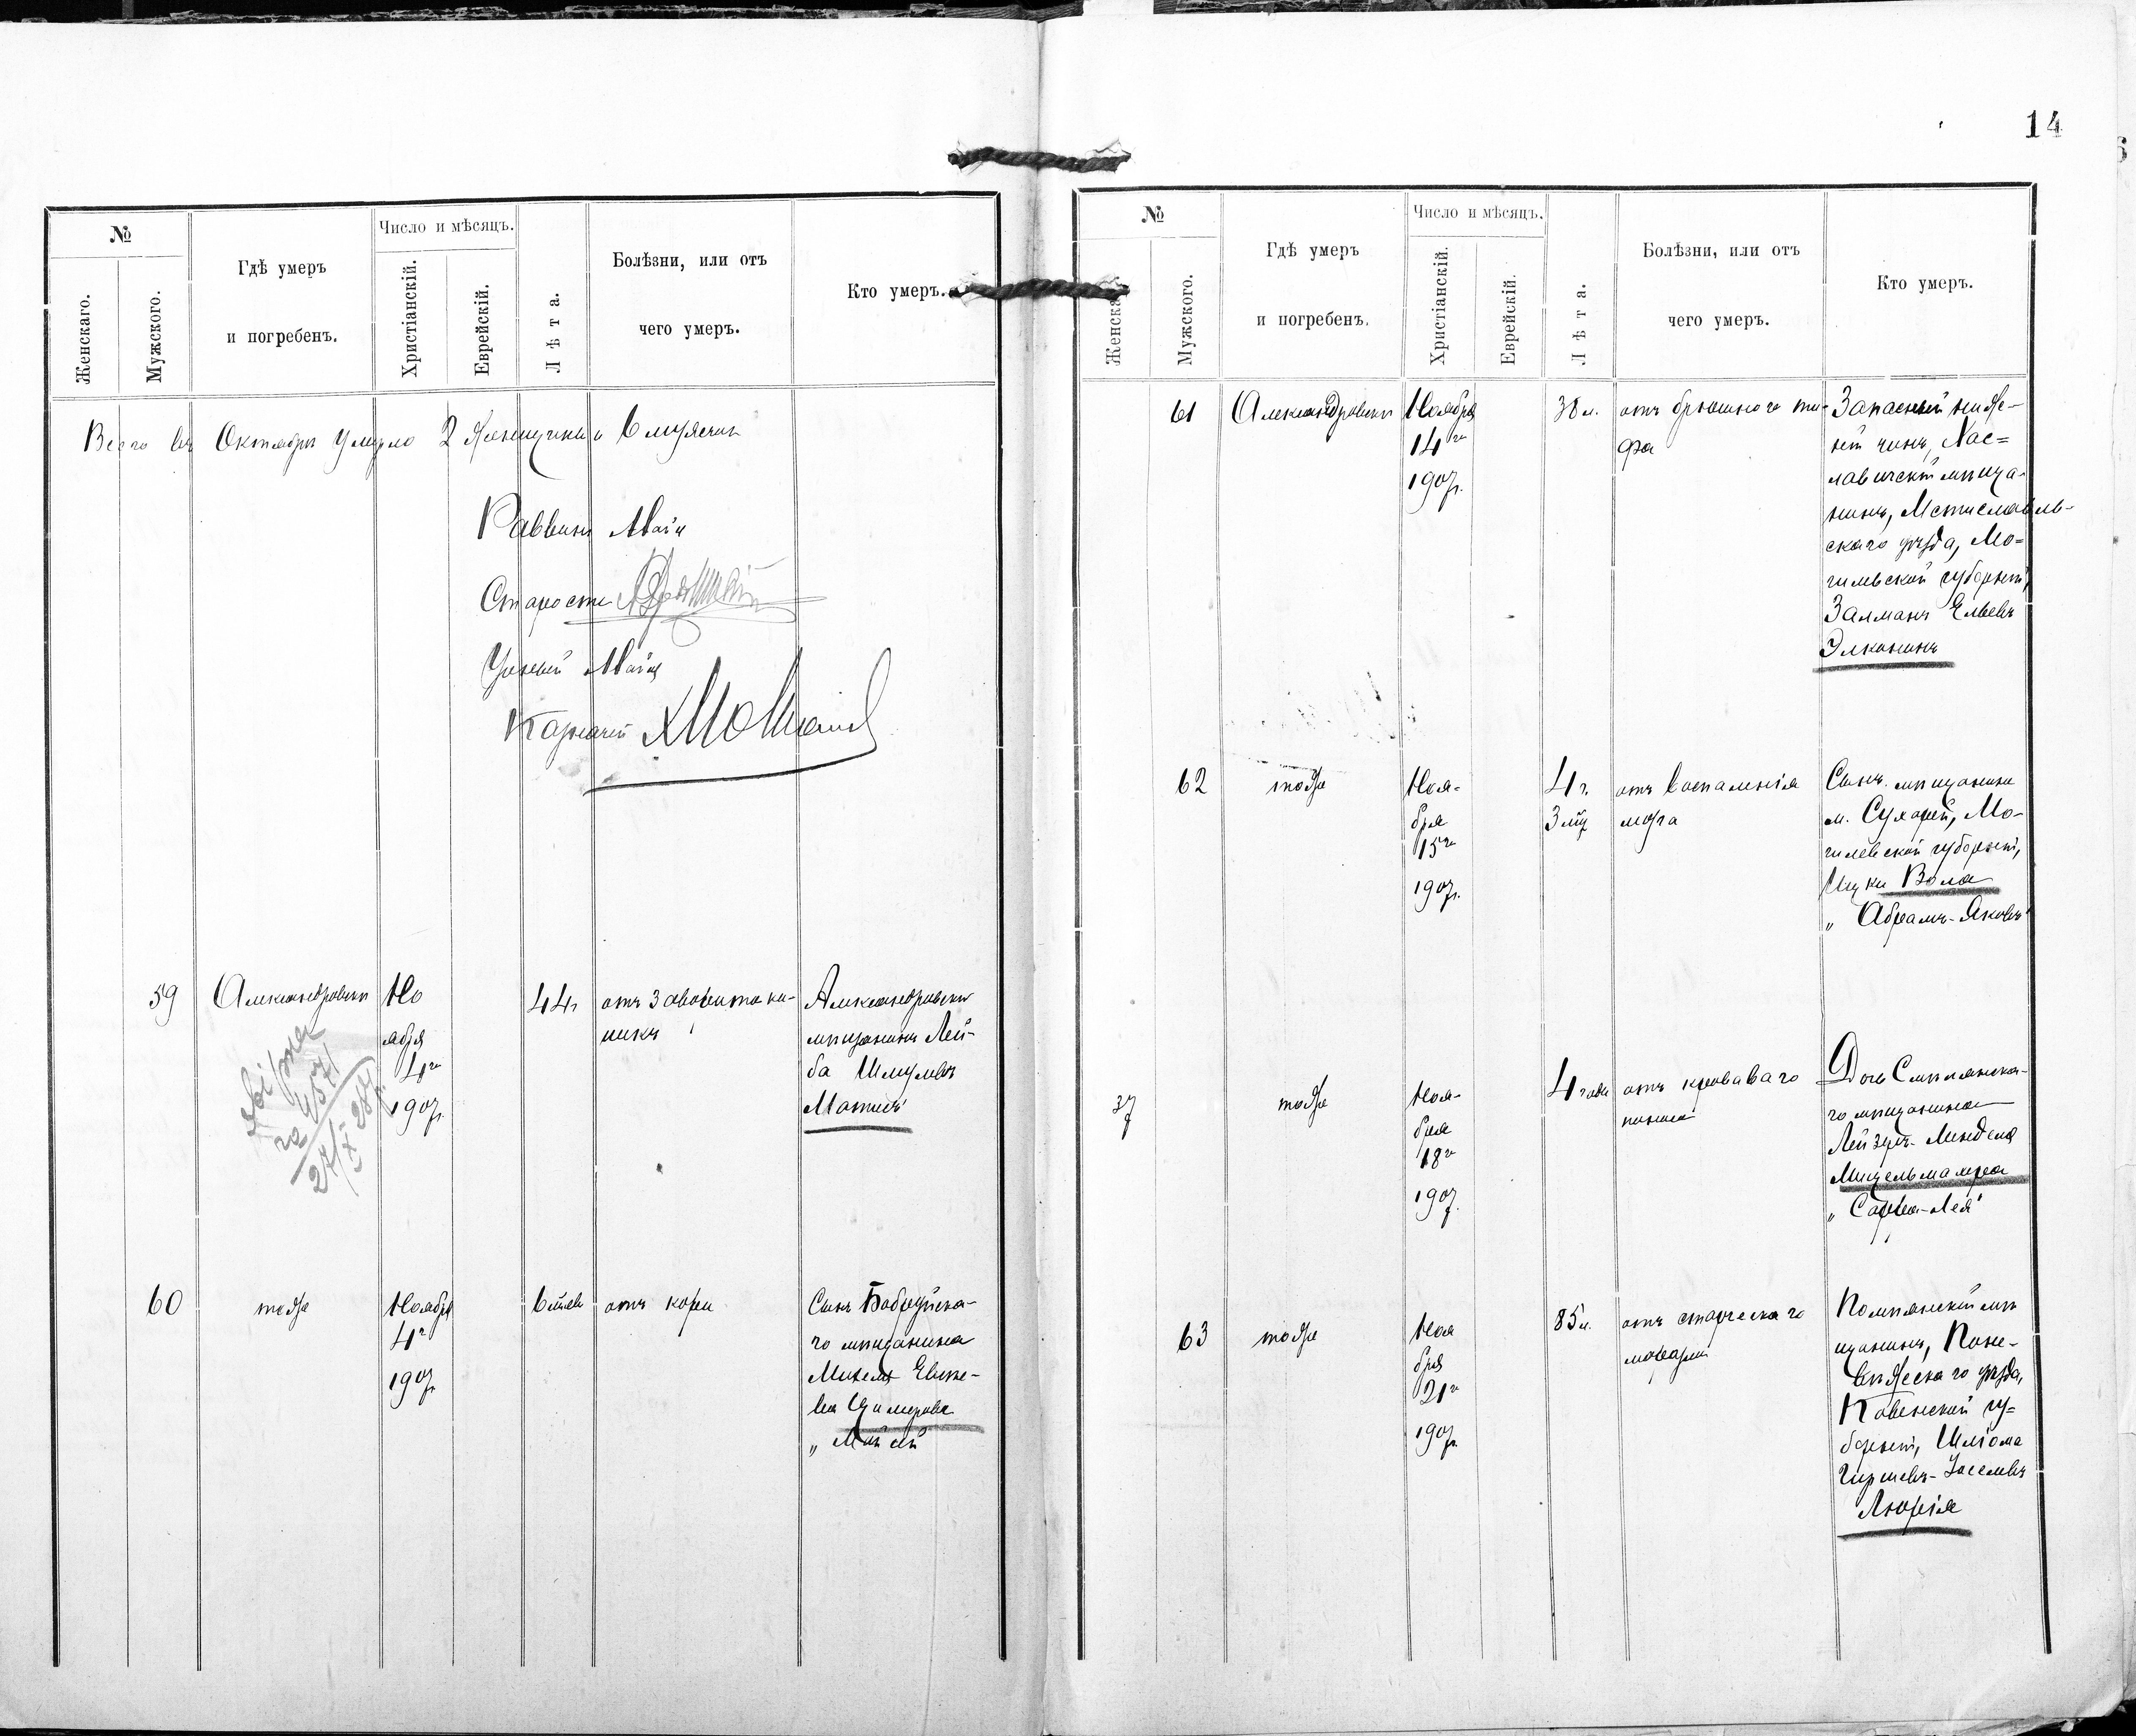 14
№
Женскаго.
Мужского.
Гдѣ умеръ
и погребенъ.
Число и мѣсяцъ.
Христіанскій.
Еврейскій.
Лѣта.
Болѣзни, или отъ
чего умеръ.
Кто умеръ.
Всего въ Октябрѣ умерло 2 женщины и 6 мужчин
Раввинъ
Староста
Ученый
Казначей
59
Александровскъ
Но
ября
4го
1907г.
44г
отъ
Александровскій
мѣщанинъ Лей-
ба Шмулевъ
27/X 28г.
60
тоже
Ноября
4го
1907г.
6 лѣтъ
отъ кори
Сынъ Бобруйска-
го мѣщанина
№
Женска
Мужского.
Гдѣ умеръ
и погребенъ.
Число и мѣсяцъ.
Христіанскій.
Еврейскій.
Лѣта.
Болѣзни, или отъ
чего умеръ.
Кто умеръ.
61
Александровскъ
Ноября
14го
1907г.
38 л.
отъ брюшного ти-
фа
Запасный ниж-
ній чинъ, Хос-
лавичскій мѣща-
нинъ, Мстиславль-
скаго уѣзда, Мо-
гилевской губерніи,
Залманъ Ельевъ
Элконинъ
62
тоже
Ноя-
бря
15го
1907г.
4 г.
3 мѣс
отъ воспаленія
мозга
Сынъ мѣщанина
м. Сухарей, Мо-
гилевской губерніи,
Ицки
„Абрамъ-Яковъ"
37
тоже
Ноя-
бря
18го
1907г.
4 года
отъ кроваваго
поноса
Дочь Смилянска-
го мѣщанина
Лейзеръ-Менделя
„Сарра-Лея"
63
тоже
Ноя
бря
21го
1907г.
85 л.
отъ старческаго
маразма
Помпянскій мѣ
щанинъ, Поне-
вѣжскаго уѣзда,
Ковенской гу-
берніи, Шлiома
Гиршевъ-Іоселевъ
Люрія